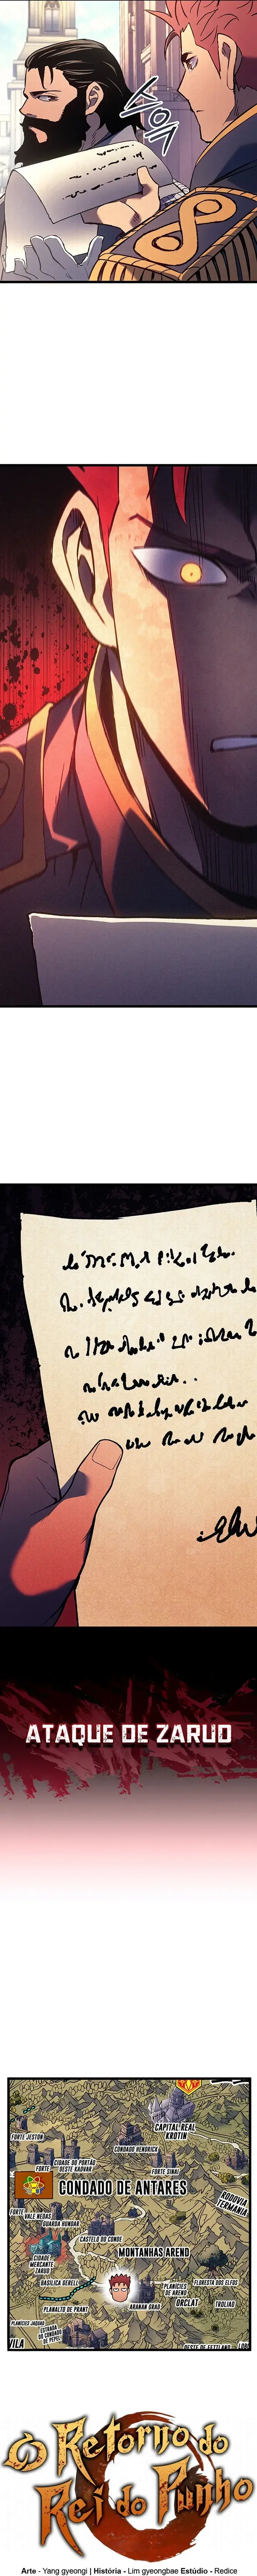 ATAQUE DE ZARUD
CAPITAL REAL
KROTIN
FORTE JESTON
CONDADO HENDRICK
CIDADE DO PORTÃO
OESTE KADVAR
FORTE
FORTE SINAI
CONDADO DE ANTARES
RODOVIA
TERMANIA
FORTE
VALE NEDAS
GUARDA HUNDAR
CASTELO DO CONDE
MONTANHAS AREND
CIDADE
MERCANTE
ZARUD
BASÍLICA GERELL
PLANÍCIES
DE AREND
FLORESTA DOS ELFOS
PLANALTO DE PRANT
ARANAN GRAD
ORCLAT
TROLIAD
PLANÍCIES JAQUAR
ESTRADA
DO CONDADO
DE PEPEL
VILA
O Retorno do
Rei do Punho
Arte - Yang gyeongi | História - Lim gyeongbae Estúdio - Redice